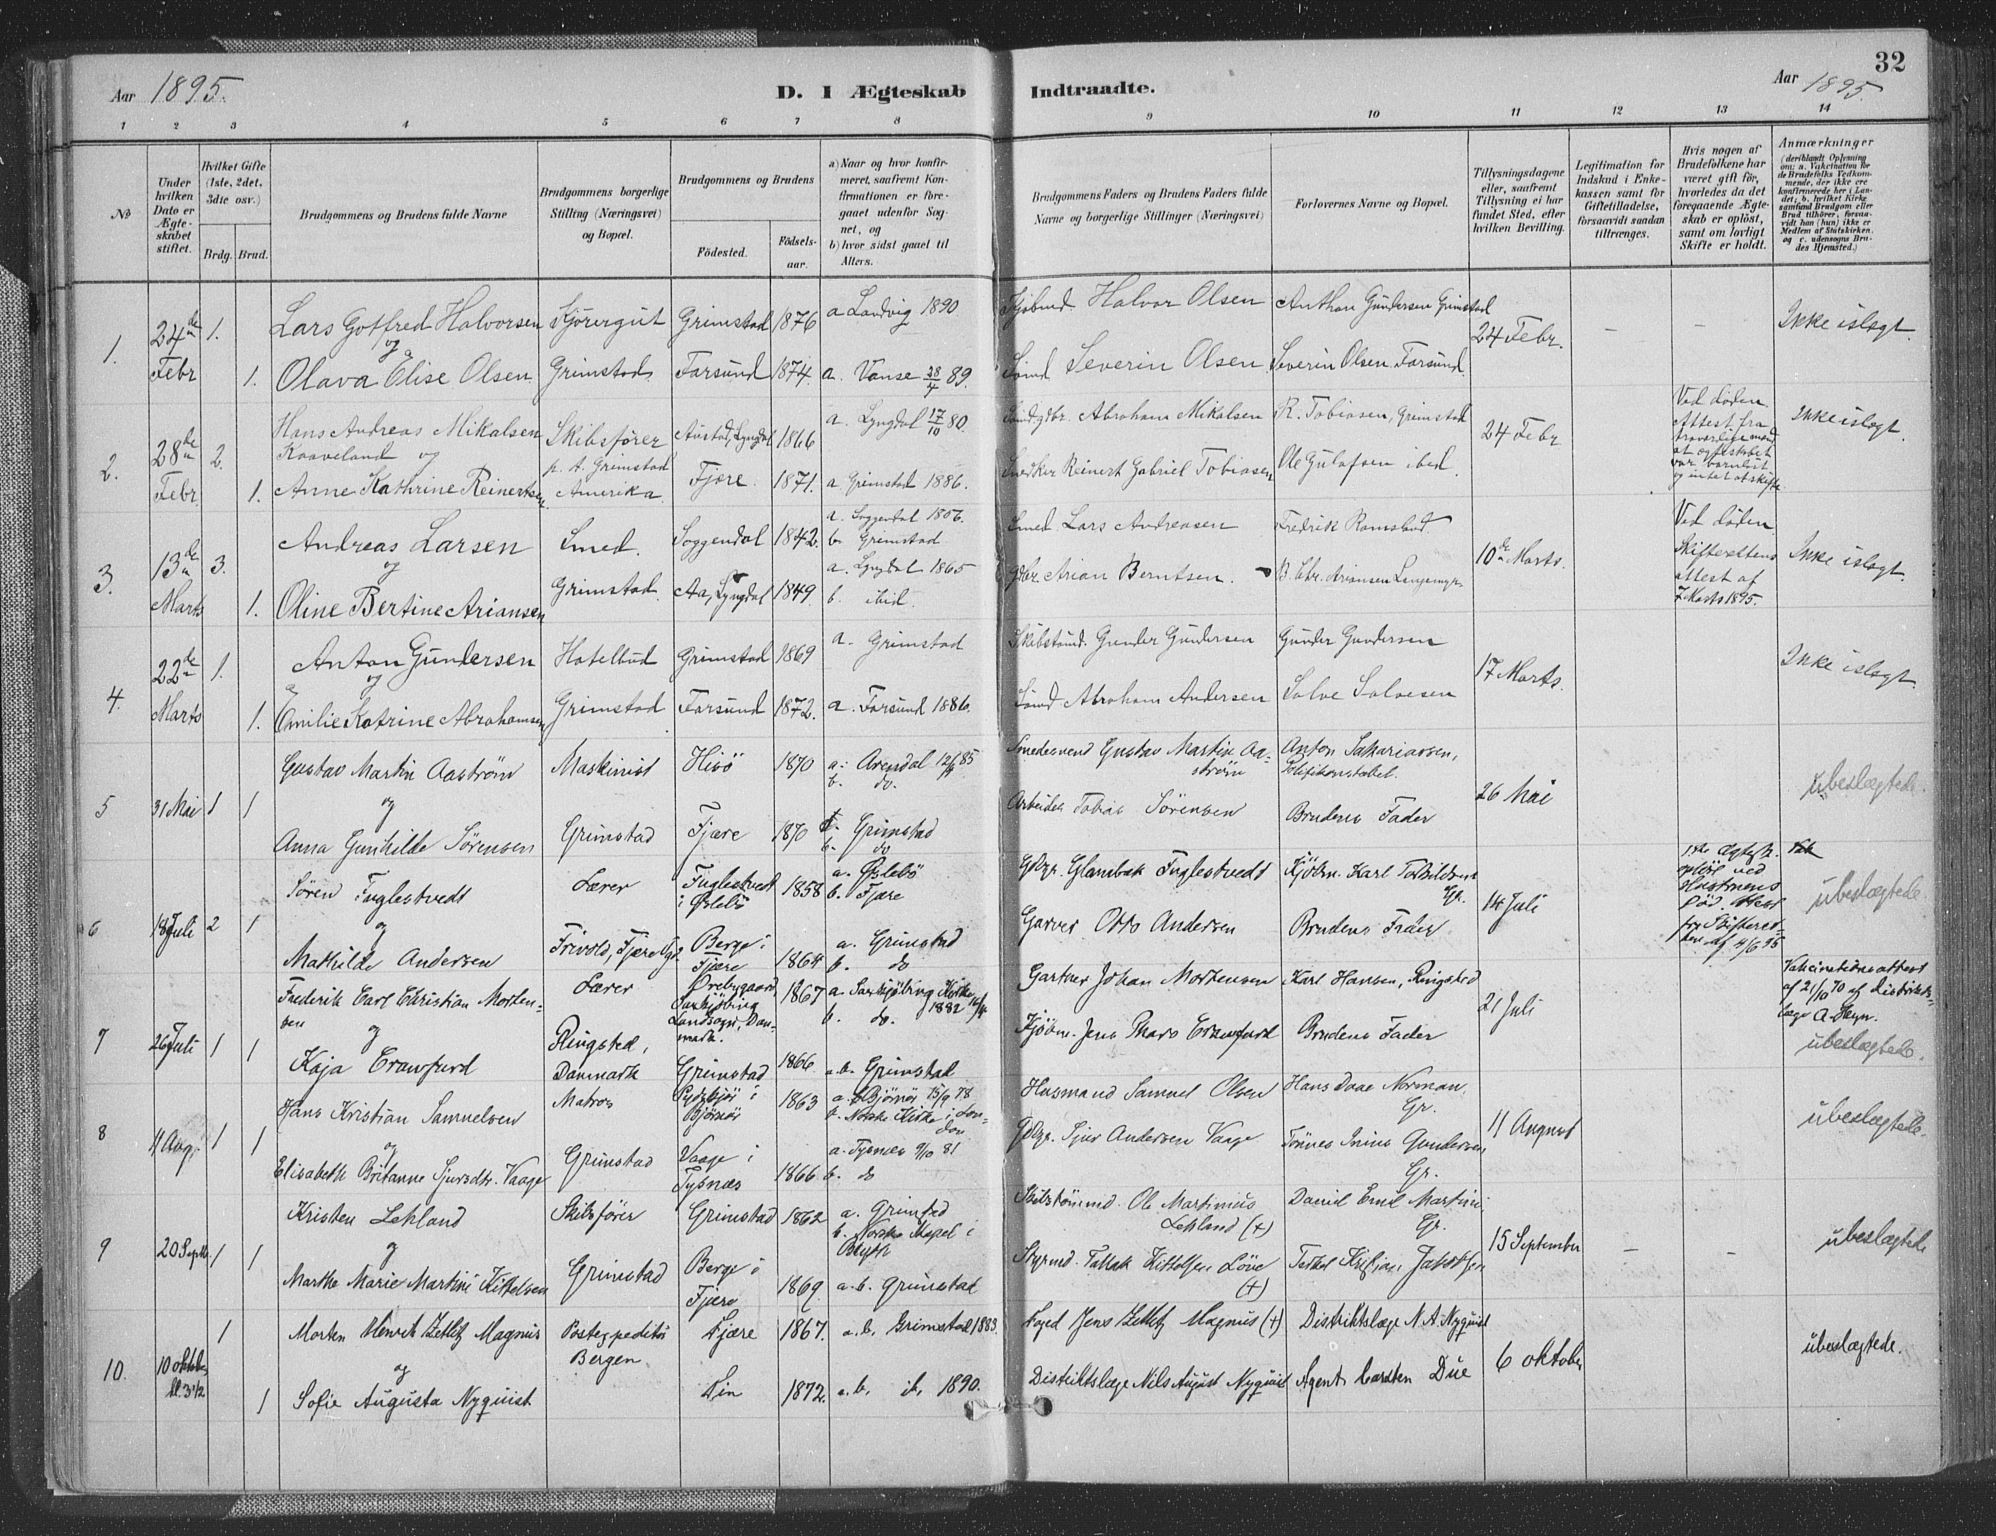 Aar 1895.
D. I Ægteskab
Indtraadte.
Aar 1895.
32
1 2 3 4 5 6 7 8 9 10 11 12 13 14
No
Under hvilken Dato er Ægteskabet stiftet.
Hvilket Gifte (1ste, 2det, 3die osv.)
Brdg. Brud.
Brudgommens og Brudens fulde Navne
Brudgommens borgerlige Stilling (Næringsvei) og Bopæl.
Brudgommens og Brudens
Fødested.
Fødselsaar.
a) Naar og hvor konfirmeret, saafremt Konfirmationen er foregaaet udenfor Sognet, og
b) hvor sidst gaaet til Alters.
Brudgommens Faders og Brudens Faders fulde Navne og borgerlige Stillinger (Næringsvei)
Forlovernes Navne og Bopæl.
Tillysningsdagene eller, saafremt Tillysning ei har fundet Sted, efter hvilken Bevilling.
Legitimation for Indskud i Enkekassen samt for Giftetilladelse, forsaavidt saadan tiltrænges.
Hvis nogen af Brudefolkene har været gift før, hvorledes da det foregaaende Ægteskab er opløst, samt om lovligt Skifte er holdt.
Anmærkninger
(deriblandt Oplysning om: a. Vakcination for de Brudefolks Vedkommende, der ikke ere konfirmerede her i Landet; b. hvilket Kirkesamfund Brudgom eller Brud tilhører, forsaavidt han (hun) ikke er Medlem af Statskirken, og c. udensogns Brudes Hjemsted.)
1. 24de Febr 1. Lars Gotfred Halvorsen Kjøregut Grimstad 1876 a Landvig 1890 Halvor Olsen Anthon Gundersen Grimstad 24 Febr. – – Ikke islægt.
og
1. Olava Elise Olsen Grimstad Farsund 1874. a. Vanse 28/4 89. Sømd Severin Olsen Severin Olsen Farsund.
2. 28de Febr 2. Hans Andreas Mikalsen Kaaveland Skibsfører p.t. Grimstad Austad, Lyngdal 1866 a. Lyngdal 17/10 80. Abraham Mikalsen R. Tobiasen, Grimstad 24 Febr Ved Døden Attest fra troværdige mænd at egteskabet var barnløst og intet at skifte Ikke islægt.
og
1. Anne Kathrine Reinertsen Amerika Fjære. 1871. a Grimstad 1886. Snedker Reinert Gabriel Tobiasen Ole Gulofsen ibid.
3. 13de Marts 3. Andreas Larsen Smed. Soggendal 1842. a. Soggendal 1856. b. Grimstad Smed Lars Andreasen Fredrik Ramstad 10de Marts. Ved Døden Skifterettens attest af 7 Marts 1895. Ikke islægt.
og
1. Oline Bertine Ariansen Grimstad Aa, Lyngdal 1849. a. Lyngdal 1865 b. ibid. Gbr. Arian Berntsen. B. Chr. Ariansen
4. 22de Marts 1. Anton Gundersen Hotelbud Grimstad 1869 a. Grimstad Gunder Gundersen Gunder Gundersen 17 Marts. Ikke islægt.
og
1. Emilie Katrine Abrahamsen Grimstad Farsund 1872. a. Farsund 1886. Sømd Abraham Andersen Salve Salvesen
5 31 Mai 1 1 Gustav Martin Aastrøm Maskinist Hisö 1870 a. Arendal 85 b. do. Smedesvend Gustav Martin Aastrøm Anton Sakariassen, Politikonstabel. 26 Mai ubeslægtede.
og
Anna Gunhilde Sørensen Grimstad Fjære 1870 a. Grimstad b. do Arbeider Tobias Sørensen Brudens Fader
6 18 Juli 2 1 Søren Fuglestvedt Lærer Fuglestvedt i Øslebö 1858 a. Øslebö b. Fjære Fuglestvedt Kjöbm. Karl Gr. 14 Juli 1ste Ægtesk. opløst ved Hustruens Död. Attest fra Skifteretten af 4/6 95 ubeslægtede
og
Mathilde Andersen Frivold, Fjære Berge i Fjære 1864 a. Grimstad b. do Garver Otto Andersen Brudens Fader
7 26 Juli 1 1 Frederik Carl Christian Mortensen Lærer Orebygaard, Saxkjøbing Landsogn, Danmark. 1867 a. Saxkjøbing Kirke 1882 b. do. Gartner Johan Mortensen Karl Hansen, Ringsted 21 Juli Vakcinationsattest af 21/10 70 af Distriktslæge ubeslægtede.
og
Kaja Crawfurd Ringsted, Danmark Grimstad 1866 a. b. Grimstad Kjøbm. Jens Crawfurd Brudens Fader
8 11 Aug. 1 1 Hans Kristian Samuelsen Matros i Bjørnør 1863 a. Bjørnør 15/9 78 b. Norske Kirke i London Husmand Samuel Olsen Hans Norman, Gr. 11 August ubeslægtede.
og
Elisabeth Britanne Sjursdtr. Vaage Grimstad Vaage i Tysnæs 1866 a. Tysnæs 9/10 81 b. do Sjur Andersen Vaage Tønnes Gundersen Gr.
9 20 Septb. 1 1 Kristen Lekland Skibsfører Grimstad 1862 a. Grimstad b. Norske Kapel i Blyth Ole Martinius Lekland (+) Daniel Emil Martini Gr. 15 September – – ubeslægtede
og
Marthe Marie Martini Kittelsen Grimstad Berge i Fjære 1869. a. b. Grimstad Styrmd. Kittelsen (+) Kristian
10. 10 oktober kl. 3 1/2 1 Morten Henrik Zetlitz Magnus Postexpeditør Bergen Fjære 1867. a. b. Grimstad 1883. Foged Jens Zetlitz Magnus (+) Distriktslæge N. A. Nyquist 6 oktober ubeslægtede.
og
1 Sofie Augusta Nyquist 1872. a. b. ib. 1890. Distriktslæge Nils August Nyquist Agent Carsten Due